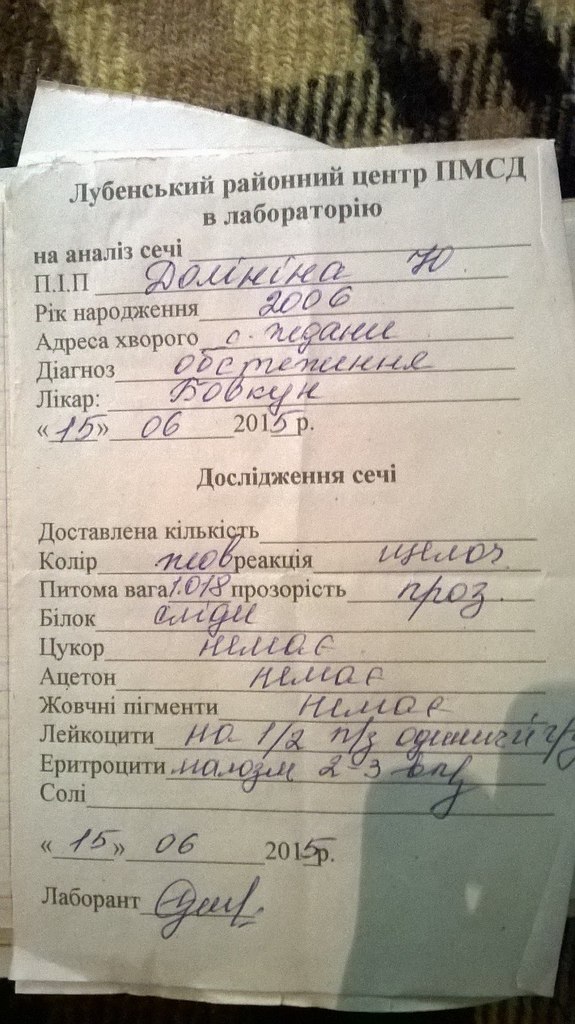 Лубенський районний центр ПМСД
в лабораторію
на аналіз сечі
П.І.П Долініна Ю.
Рік народження 2006
Адреса хворого с. Ждани
Діагноз обстеження
Лікар: Бовкун
«15» 06 2015 р.
Дослідження сечі
Доставлена кількість
Колір жов реакція щелоч
Питома вага 1.018 прозорість проз.
Білок сліди
Цукор немає
Ацетон немає
Жовчні пігменти немає
Лейкоцити на 1/2 п/з
Еритроцити малозм 2-3 в п/з
Солі
«15» 06 2015р.
Лаборант